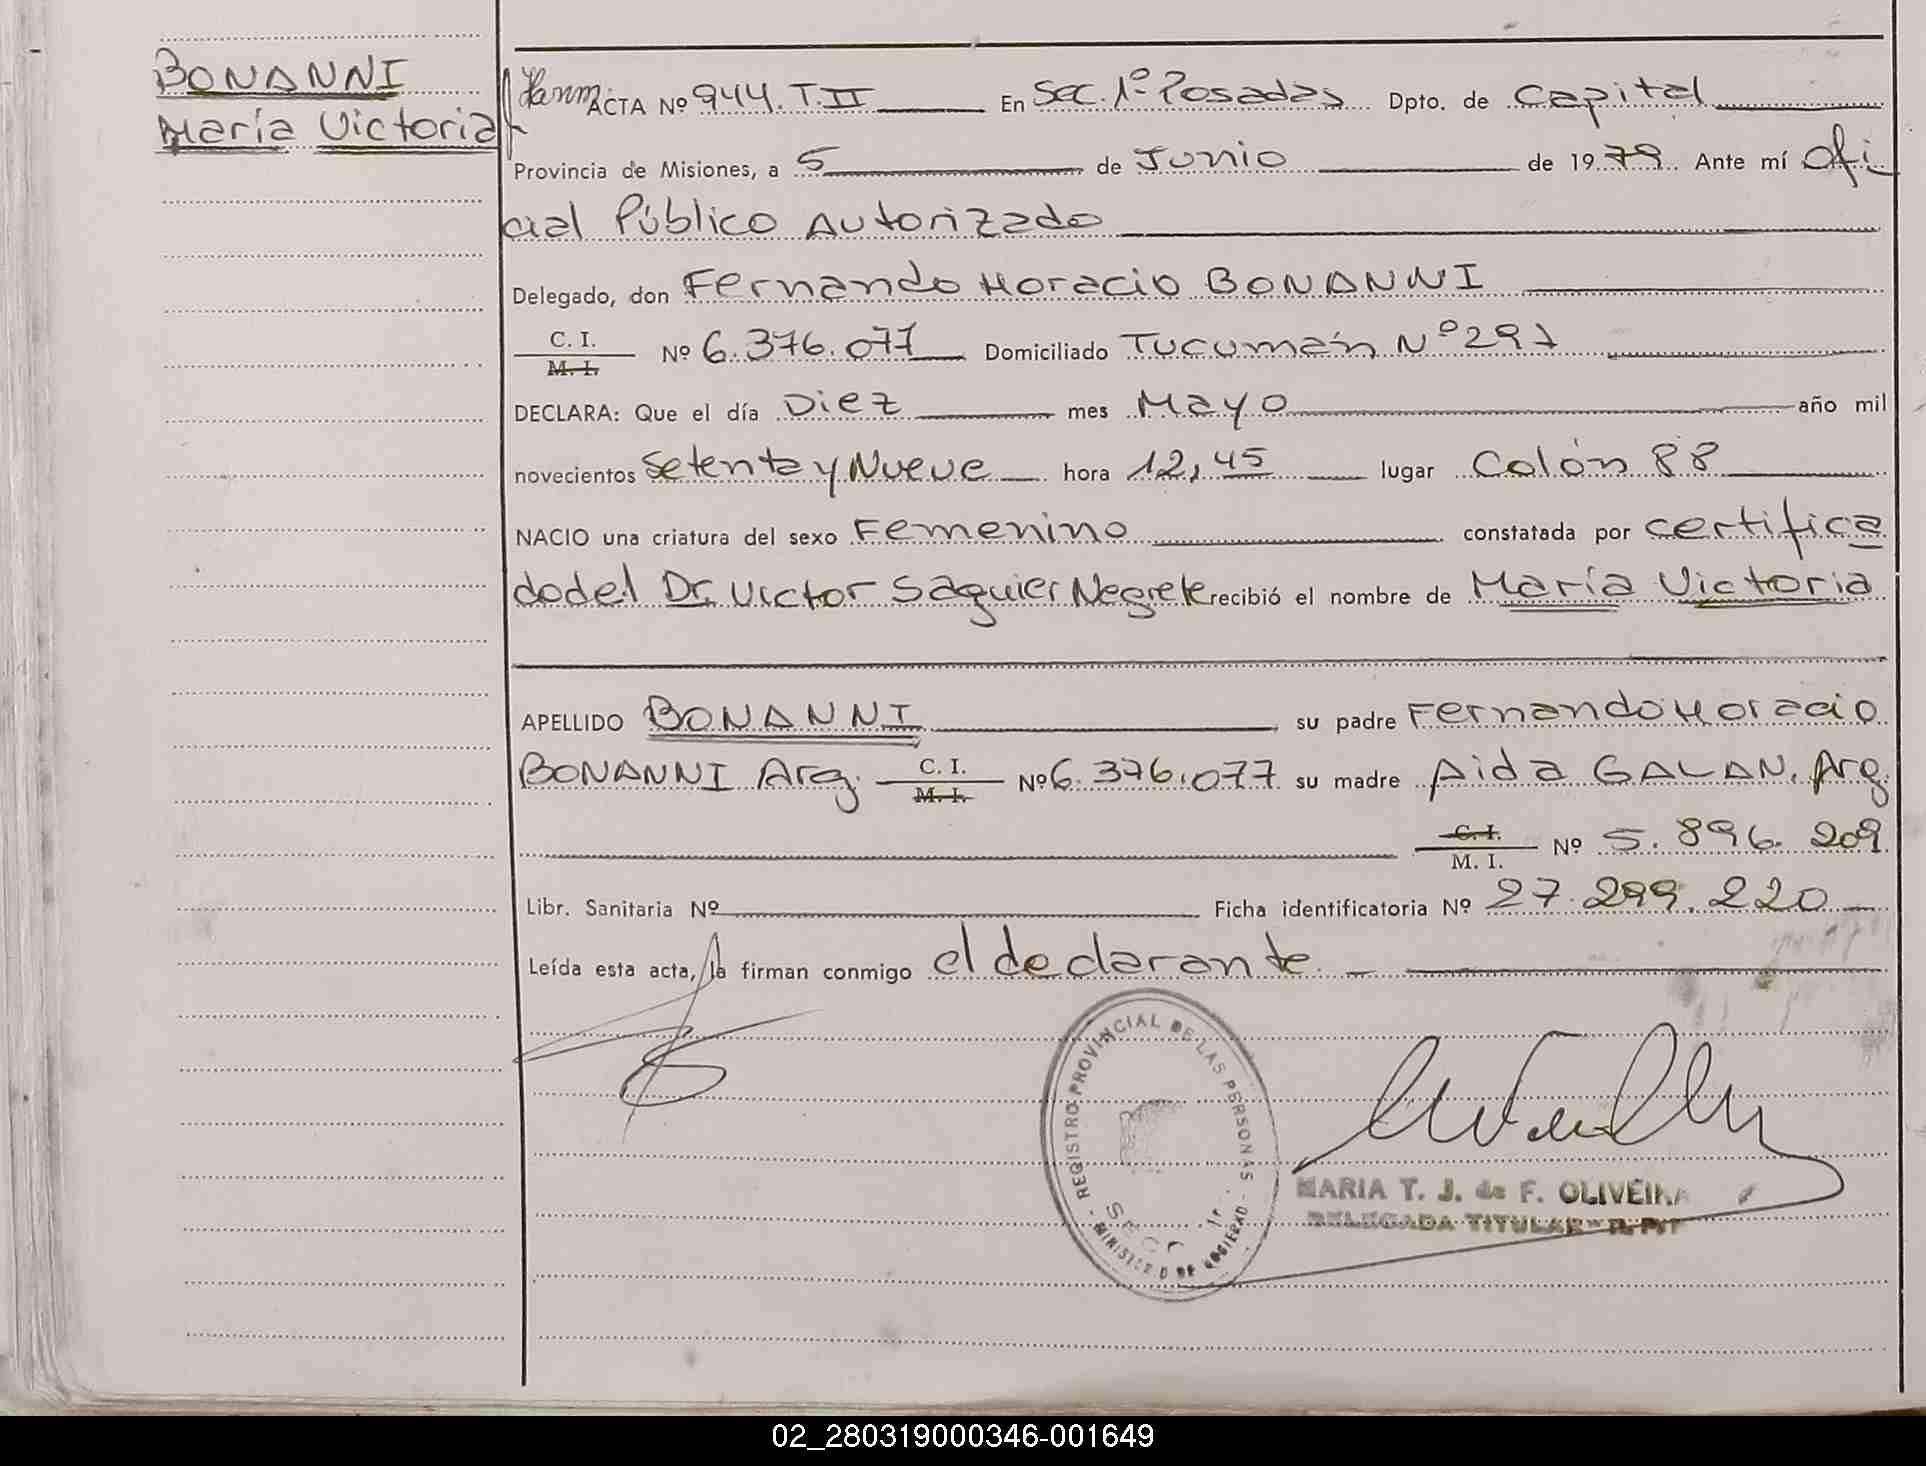 BONANNI
María Victoria
ACTA Nº 944. T. II En Sec. 1º Posadas Dpto. de Capital
Provincia de Misiones, a 5 de Junio de 1979 Ante mí Ofi
cial Público Autorizado
Delegado, don Fernando Horacio BONANNI
C. I.
M. I. Nº 6.376.077 Domiciliado Tucumán Nº 297
DECLARA: Que el día Diez mes Mayo año mil
novecientos Setenta y Nueve hora 12,45 lugar Colón 88
NACIO una criatura del sexo Femenino constatada por certifica
do del Dr. Victor Saguier Negrete recibió el nombre de María Victoria
APELLIDO BONANNI su padre Fernando Horacio
BONANNI Arg. C. I.
M. I. Nº 6.376.077 su madre Aida GALAN. Arg.
C. I.
M. I. Nº 5.896.209
Libr. Sanitaria Nº Ficha identificatoria Nº 27.299.220
Leída esta acta, la firman conmigo el declarante.
REGISTRO PROVINCIAL DE LAS PERSONAS
MARIA T. J. de F. OLIVEIRA
DELEGADA TITULAR
02_280319000346-001649